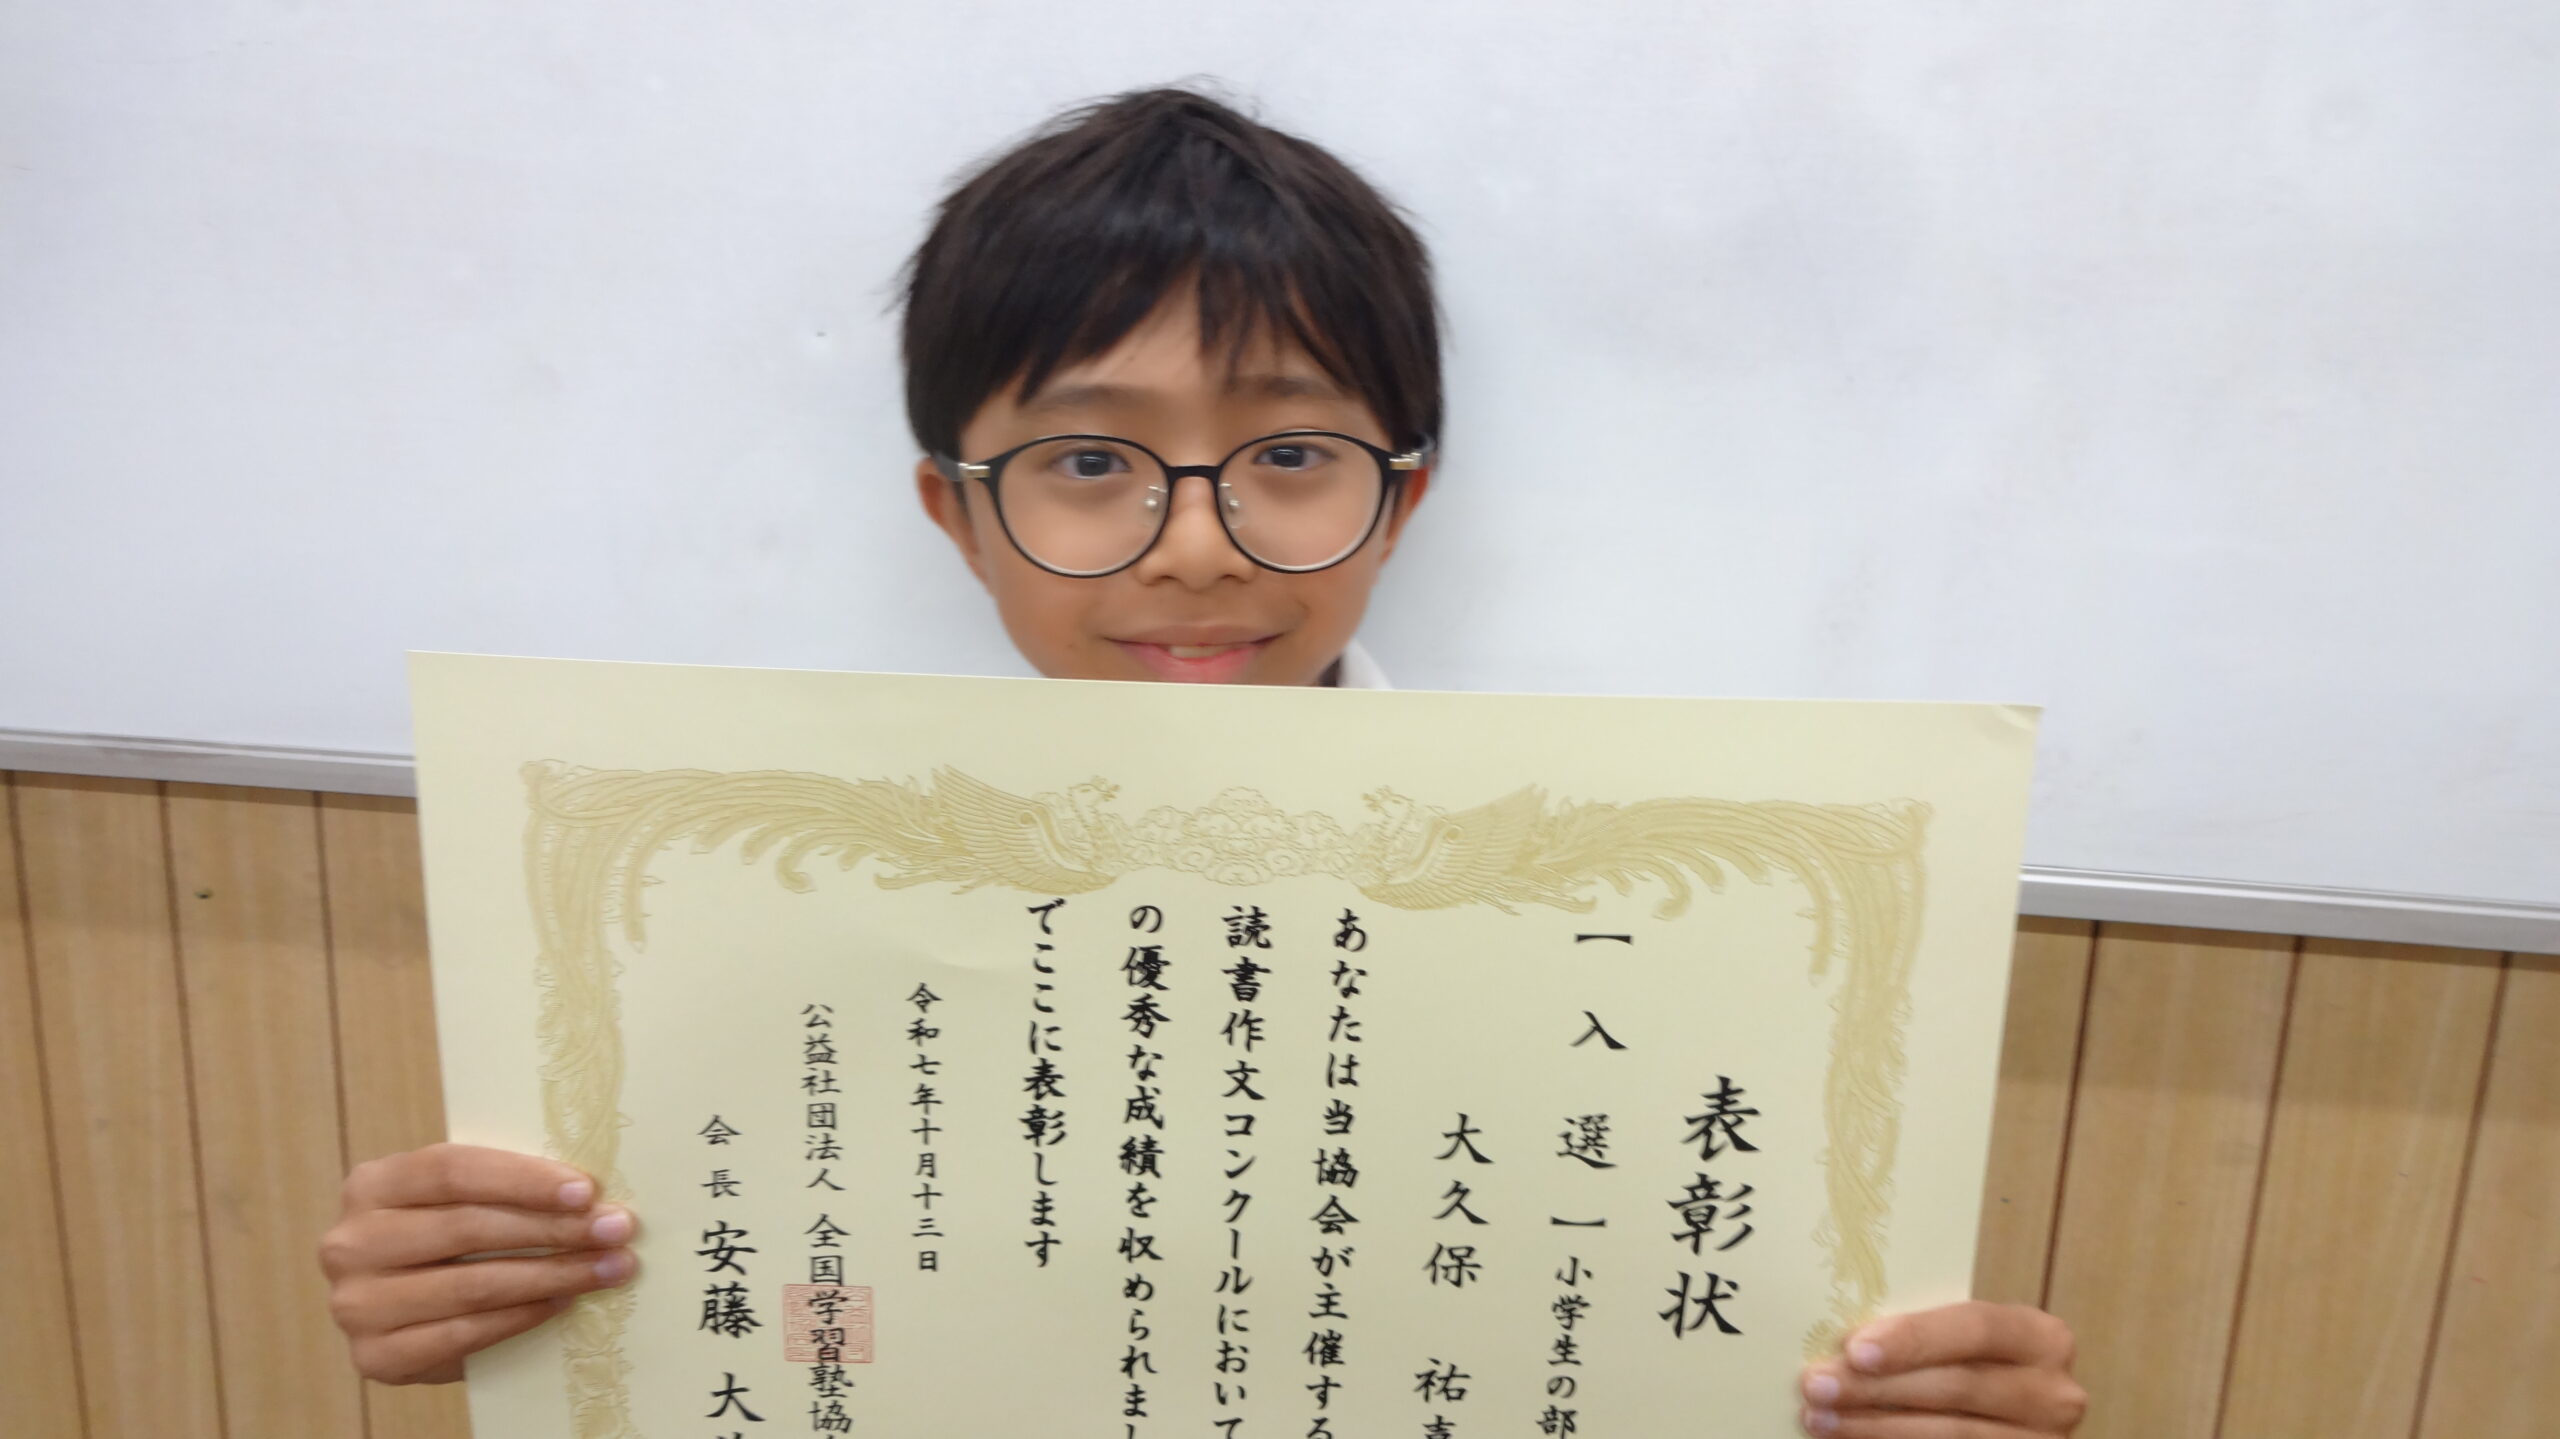 表彰状
【入選】小学生の部
大久保 祐
あなたは当協会が主催する
読書作文コンクールにおいて
の優秀な成績を収められまし
でここに表彰します
令和七年十月十三日
公益社団法人 全国学習塾協
会長 安藤 大